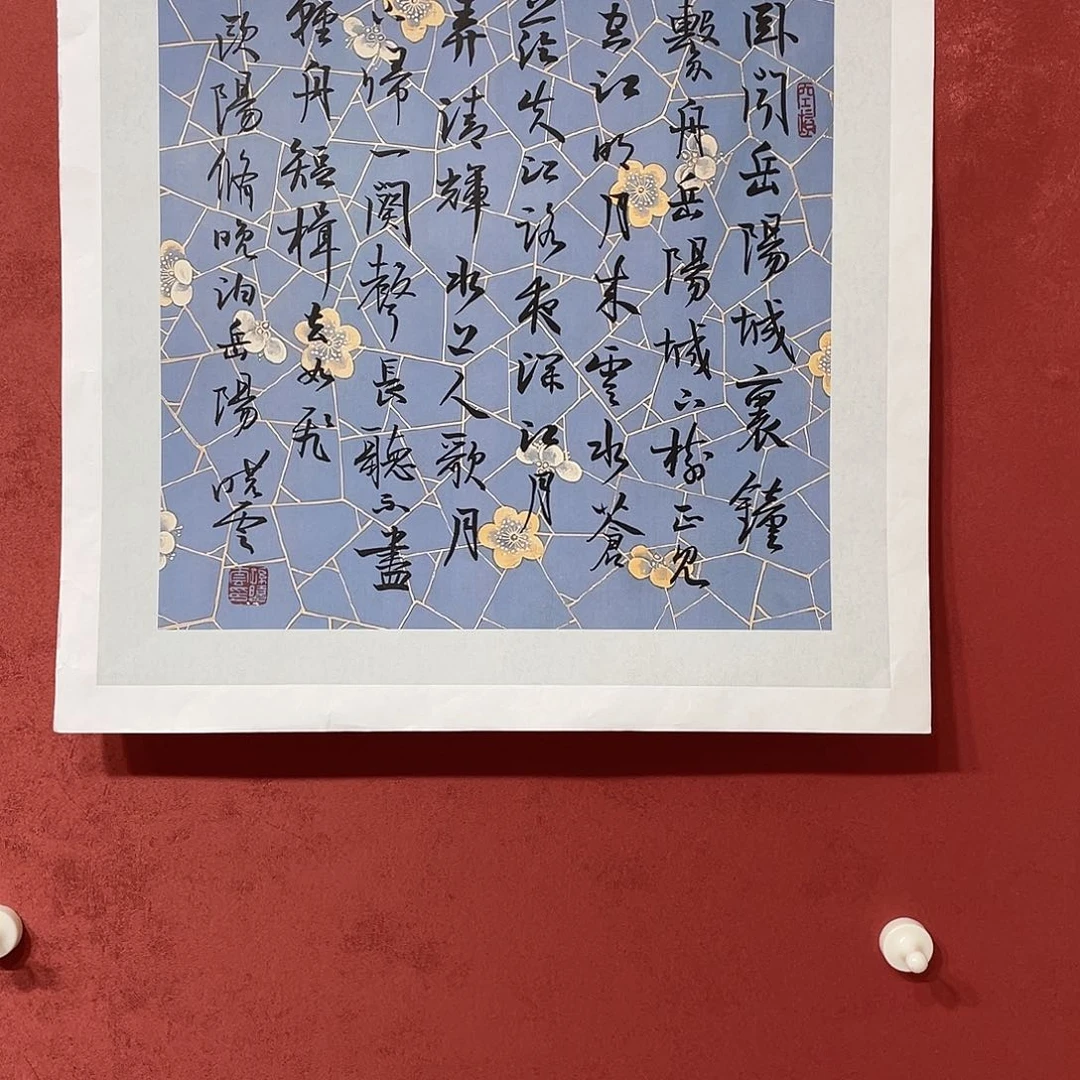 臥聞岳陽城裏鐘
繫舟岳陽城下樹正見
空江明月來雲水蒼
茫失江路夜深江月
弄清輝水上人歌月
下歸一闋聲長聽不盡
輕舟短楫去如飛
歐陽脩晚泊岳陽 曉雲